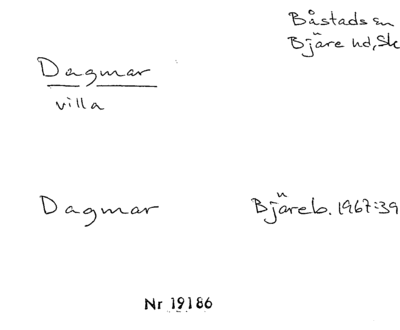 Båstads sn
Bjäre hd, Sk
Dagmar
villa
Dagmar Bjäreb. 1967:39
Nr 19186